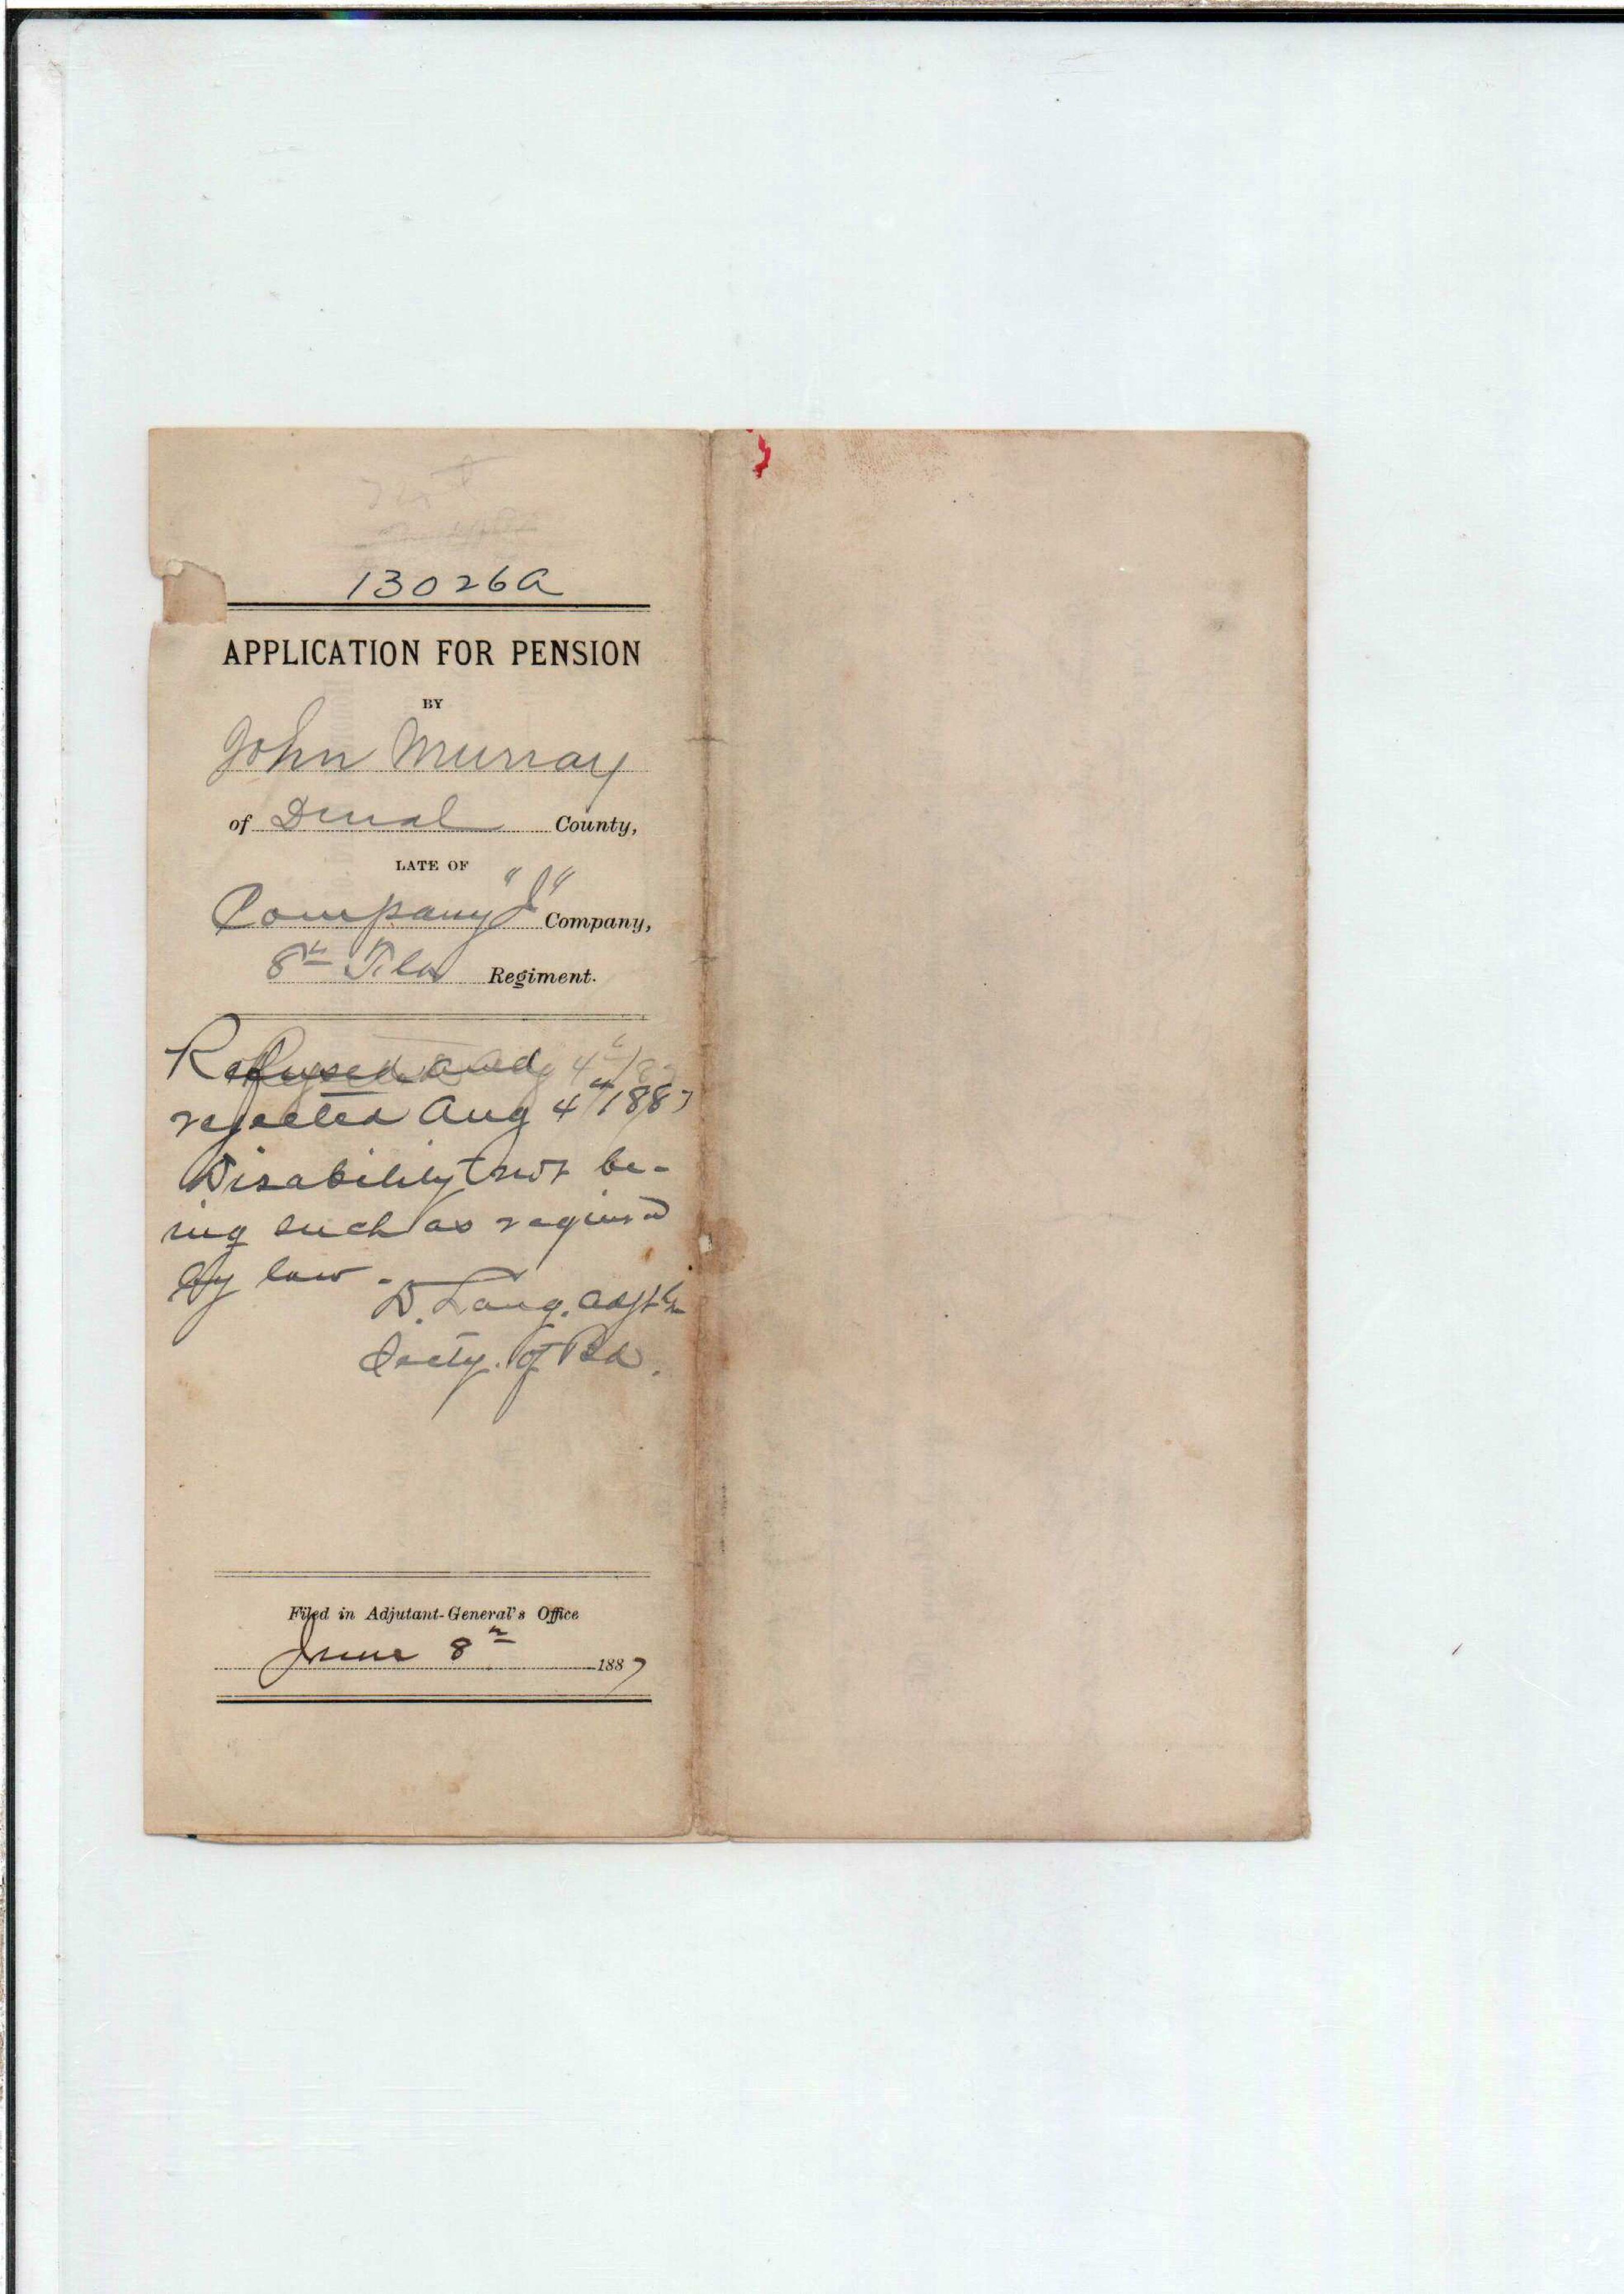 13026a
APPLICATION FOR PENSION
BY
John Murray
of Duval County,
LATE OF
Company "I" Company,
8th Fla Regiment.
Refused and
rejected Aug 4th 1887
Disability not be-
ing such as required
by law.
D. Lang. Adjt Gn
Secty. of Bd.
Filed in Adjutant-General's Office
June 8th 1887